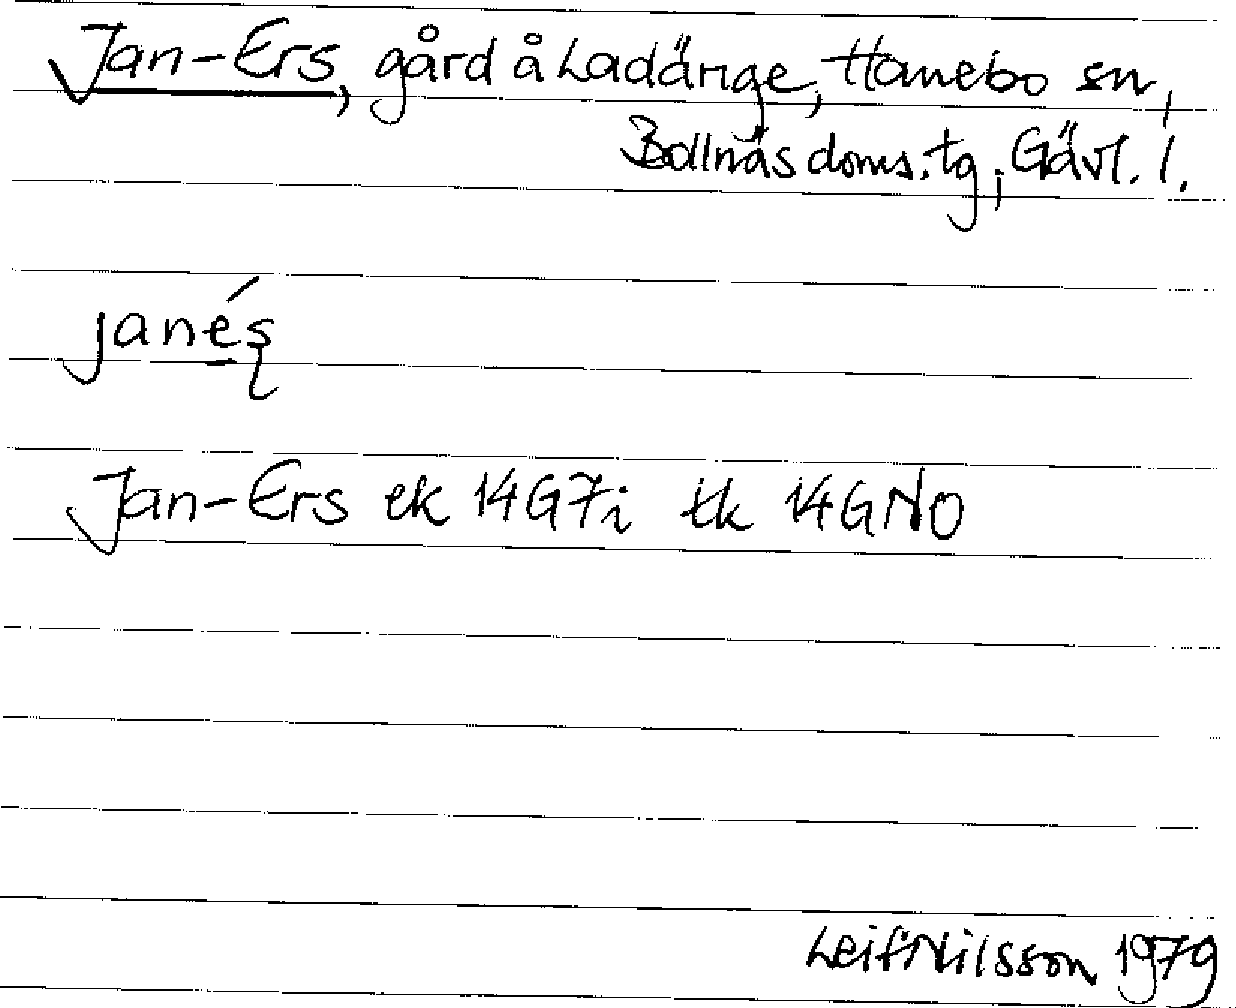 Jan-Ers, gård å Ladänge, Hanebo sn,
Bollnäs doms. tg, Gävl. l.
janéş
Jan-Ers ek 14G7i tk 14GNO
Leif Nilsson 1979